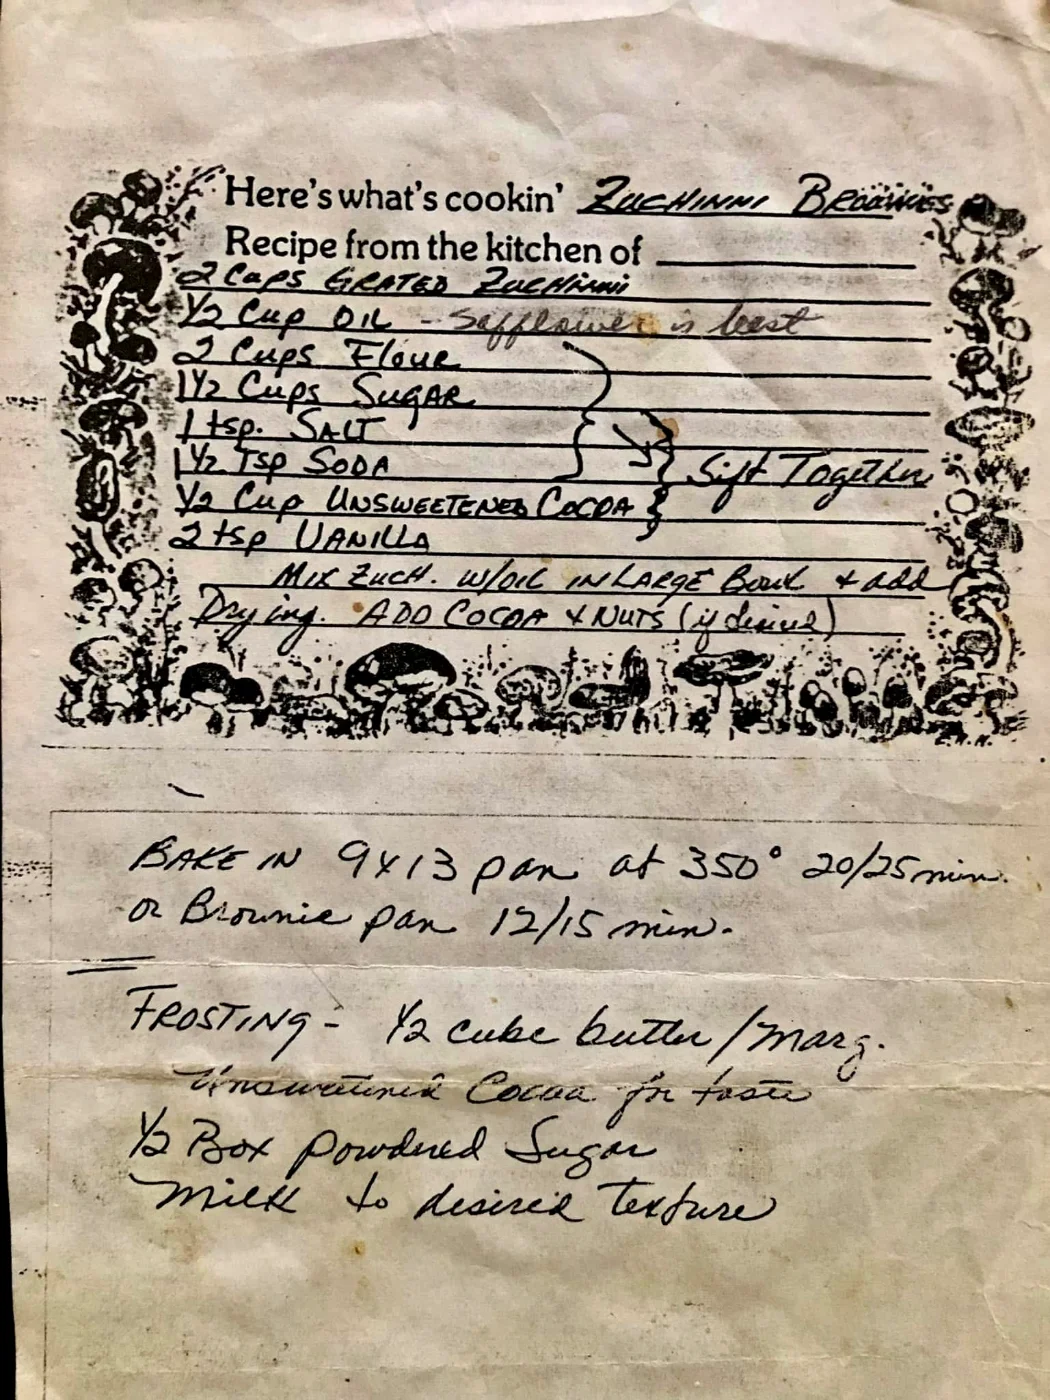 Here's what's cookin' ZUCHINNI BROWNIES
Recipe from the kitchen of
2 Cups GRATED ZUCHINNI
1/2 Cup OIL - Safflower is best
2 Cups Flour
1 1/2 Cups SUGAR
1 tsp. SALT
1 1/2 Tsp SODA
Sift Together
1/2 Cup UNSWEETENED COCOA
2 tsp VANILLA
MIX ZUCH. W/OIL IN LARGE BOWL + add
Dry ing. ADD COCOA + NUTS (if desired)
E.H.H.
BAKE IN 9x13 pan at 350° 20/25 min.
or Brownie pan 12/15 min.
FROSTING - 1/2 cube butter/marg.
Unsweetened Cocoa for taste
1/2 Box powdered Sugar
Milk to desired texture